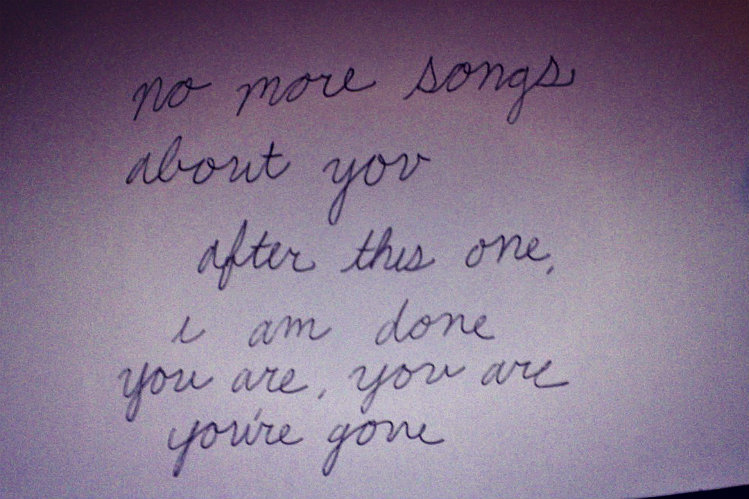 no more songs
about you
after this one,
i am done
you are, you are
you're gone